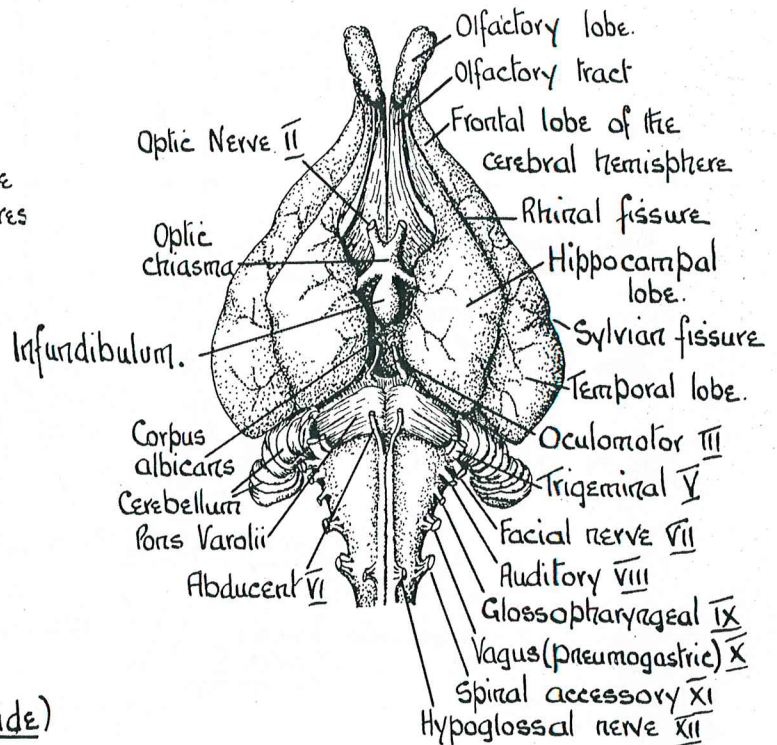 Olfactory lobe.
Olfactory tract
Frontal lobe of the
cerebral hemisphere
Rhinal fissure
Hippocampal
lobe.
Sylvian fissure
Temporal lobe.
Oculomotor III
Trigeminal V
Facial nerve VII
Auditory VIII
Glossopharyngeal IX
Vagus (pneumogastric) X
Spinal accessory XI
Hypoglossal nerve XII
Optic Nerve II
Optic
chiasma
Infundibulum.
Corpus
albicans
Cerebellum
Pons Varolii
Abducent VI